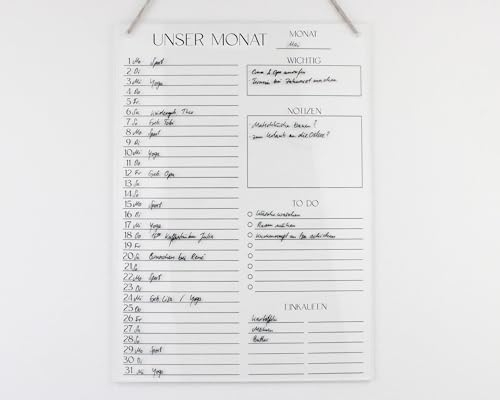 UNSER MONAT
MONAT
Mai
1 Mo Sport
2 Di
3 Mi Yoga
4 Do
5 Fr
6 Sa Kindergeb. Theo
7 So Geb. Tobi
8 Mo Sport
9 Di
10 Mi Yoga
11 Do
12 Fr Geb. Opa
13 Sa
14 So
15 Mo Sport
16 Di
17 Mi Yoga
18 Do Kaffeetrinken Julia
19 Fr
20 Sa Brunchen bei René
21 So
22 Mo Sport
23 Di
24 Mi Geb. Lisa / Yoga
25 Do
26 Fr
27 Sa
28 So
29 Mo Sport
30 Di
31 Mi Yoga
WICHTIG
Oma & Opa anrufen
Termin bei Zahnarzt machen
NOTIZEN
Matschküche bauen?
zum Urlaub an die Ostsee?
TO DO
Wäsche waschen
Rasen mähen
EINKAUFEN
Kartoffeln
Möhren
Butter